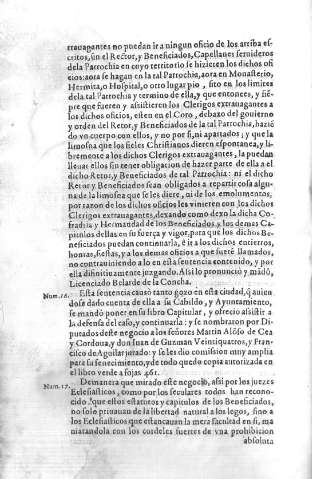 trauagantes no puedan ir a ningun oficio de los arriba es-
critos, sin el Rector, y Beneficiados, Capellanes seruideros
de la Parrochia en cuyo territorio se hizieren los dichos ofi
cios: aora se hagan en la tal Parrochia, aora en Monasterio,
Hermita, o Hospital, o otro lugar pio, sito en los limites
de la tal Parrochia y termino de ella, y que entonces, y siē-
pre que fueren y assistieren los Clerigos extrauagantes a
los dichos oficios, esten en el Coro, debaxo del gouierno
y orden del Retor, y Beneficiados de la tal Parrochia, haziē
do vn cuerpo con ellos, y no por si, ni apartados; y que la
limosna que los fieles Christianos dieren espontanea, y li-
bremente a los dichos Clerigos extrauagantes, la puedan
lleuar ellos sin tener obligacion de hazer parte de ella a el
dicho Retor, y Beneficiados de tal Parrochia: ni el dicho
Retor y Beneficiados sean obligados a repartir cosa algu-
na de la limosna que se les diere, ni de los emolumentos,
por razon de los dichos oficios les vinieren con los dichos
Clerigos extrauagantes, dexando como dexo la dicha Co-
fradia y Hermandad de los Beneficiados, y los demas Ca-
pitulos dellas en su fuerça y vigor, para que los dichos Be-
neficiados puedan continuarla, è ir a los dichos entierros,
honras, fiestas, y a los demas oficios a que fueren llamados,
no contrauiniendo a lo en esta sentencia contenido, y por
ella difinitiuamente juzgando. Assi lo pronunciò y mādò,
Licenciado Belarde de la Concha.
Num. 16. Esta sentencia causò tanto gozo en esta ciudad, q̃ auien
dose dado cuenta de ella a su Cabildo, y Ayuntamiento,
se mandò poner en su libro Capitular, y ofreciò assistir a
la defensa del caso, y continuarla: y se nombraron por Di-
putados deste negocio a los señores Martin Alōso de Cea
y Cordoua, y don Iuan de Guzman Veintiquatros, y Fran-
cisco de Aguilar jurado: y se les dio comission muy amplia
para su fenecimiento, y de todo quedo copia autorizada en
el libro verde a fojas 461.
Num. 17. De manera que mirado este negocio, assi por los juezes
Eclesiasticos, como por los seculares todos han recono-
cido que estos estatutos y capitulos de los Beneficiados,
no solo priuauan de la libertad natural a los legos, sino a
los Eclesiasticos que estancauan la mera facultad en si, ma
niatandola con los cordeles fuertes de vna prohibicion
absoluta